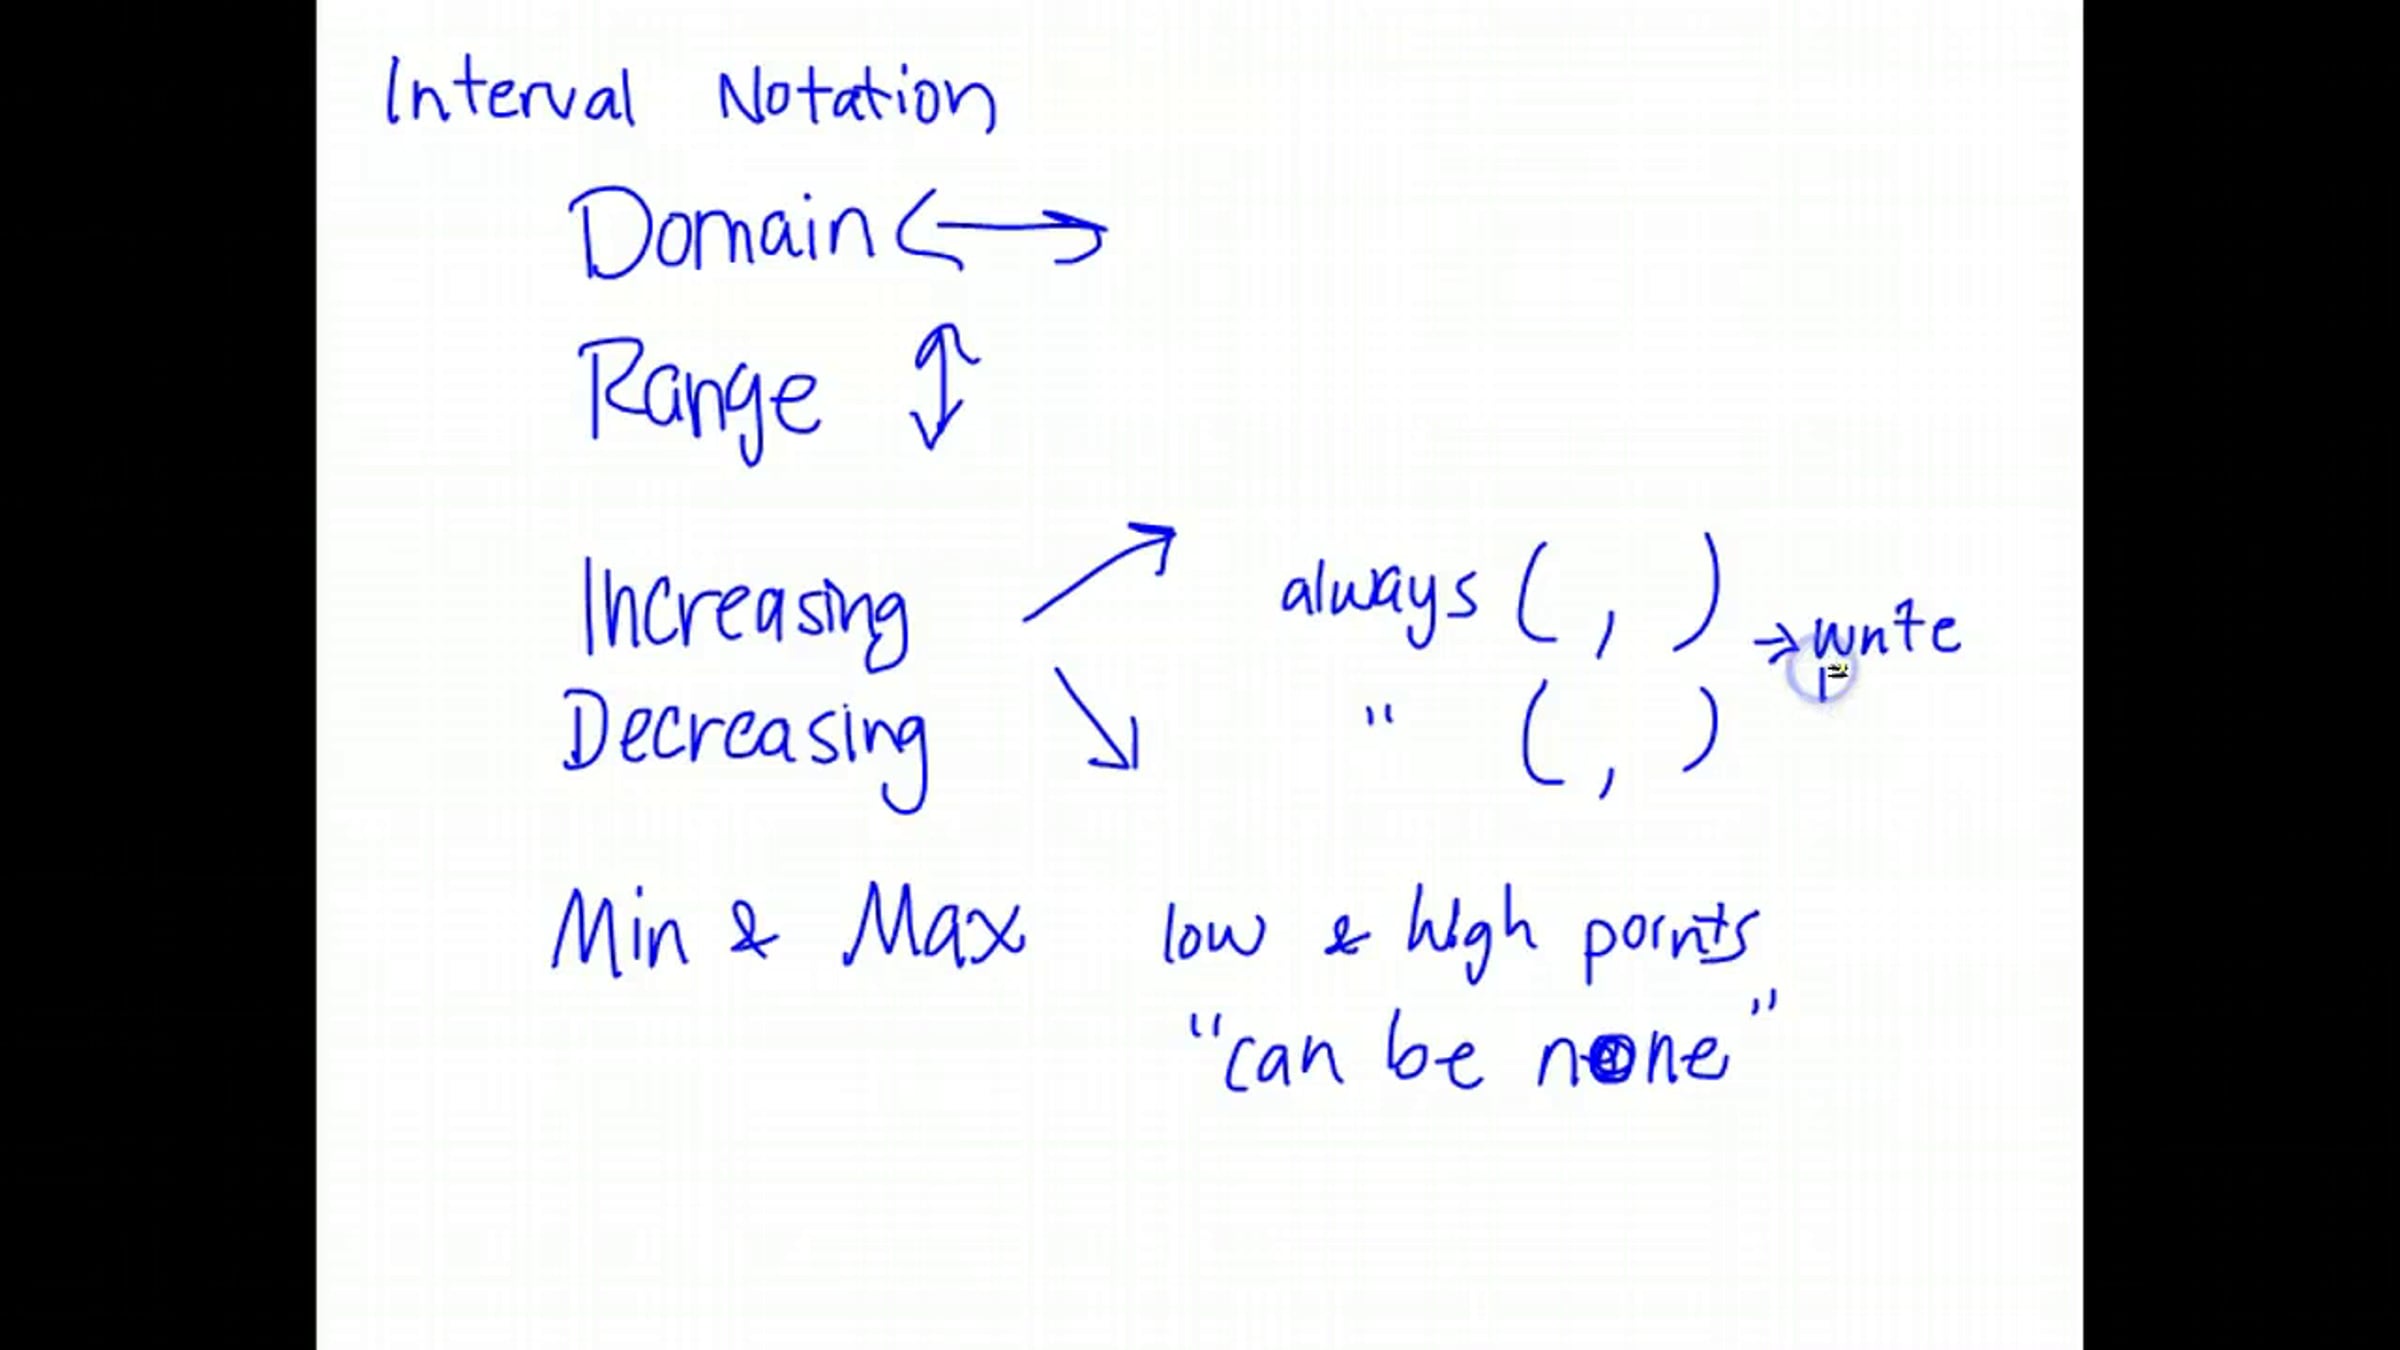 Interval Notation
Domain
Range
Increasing always ( , ) → write
Decreasing " ( , )
Min & Max low & high points
"can be none"